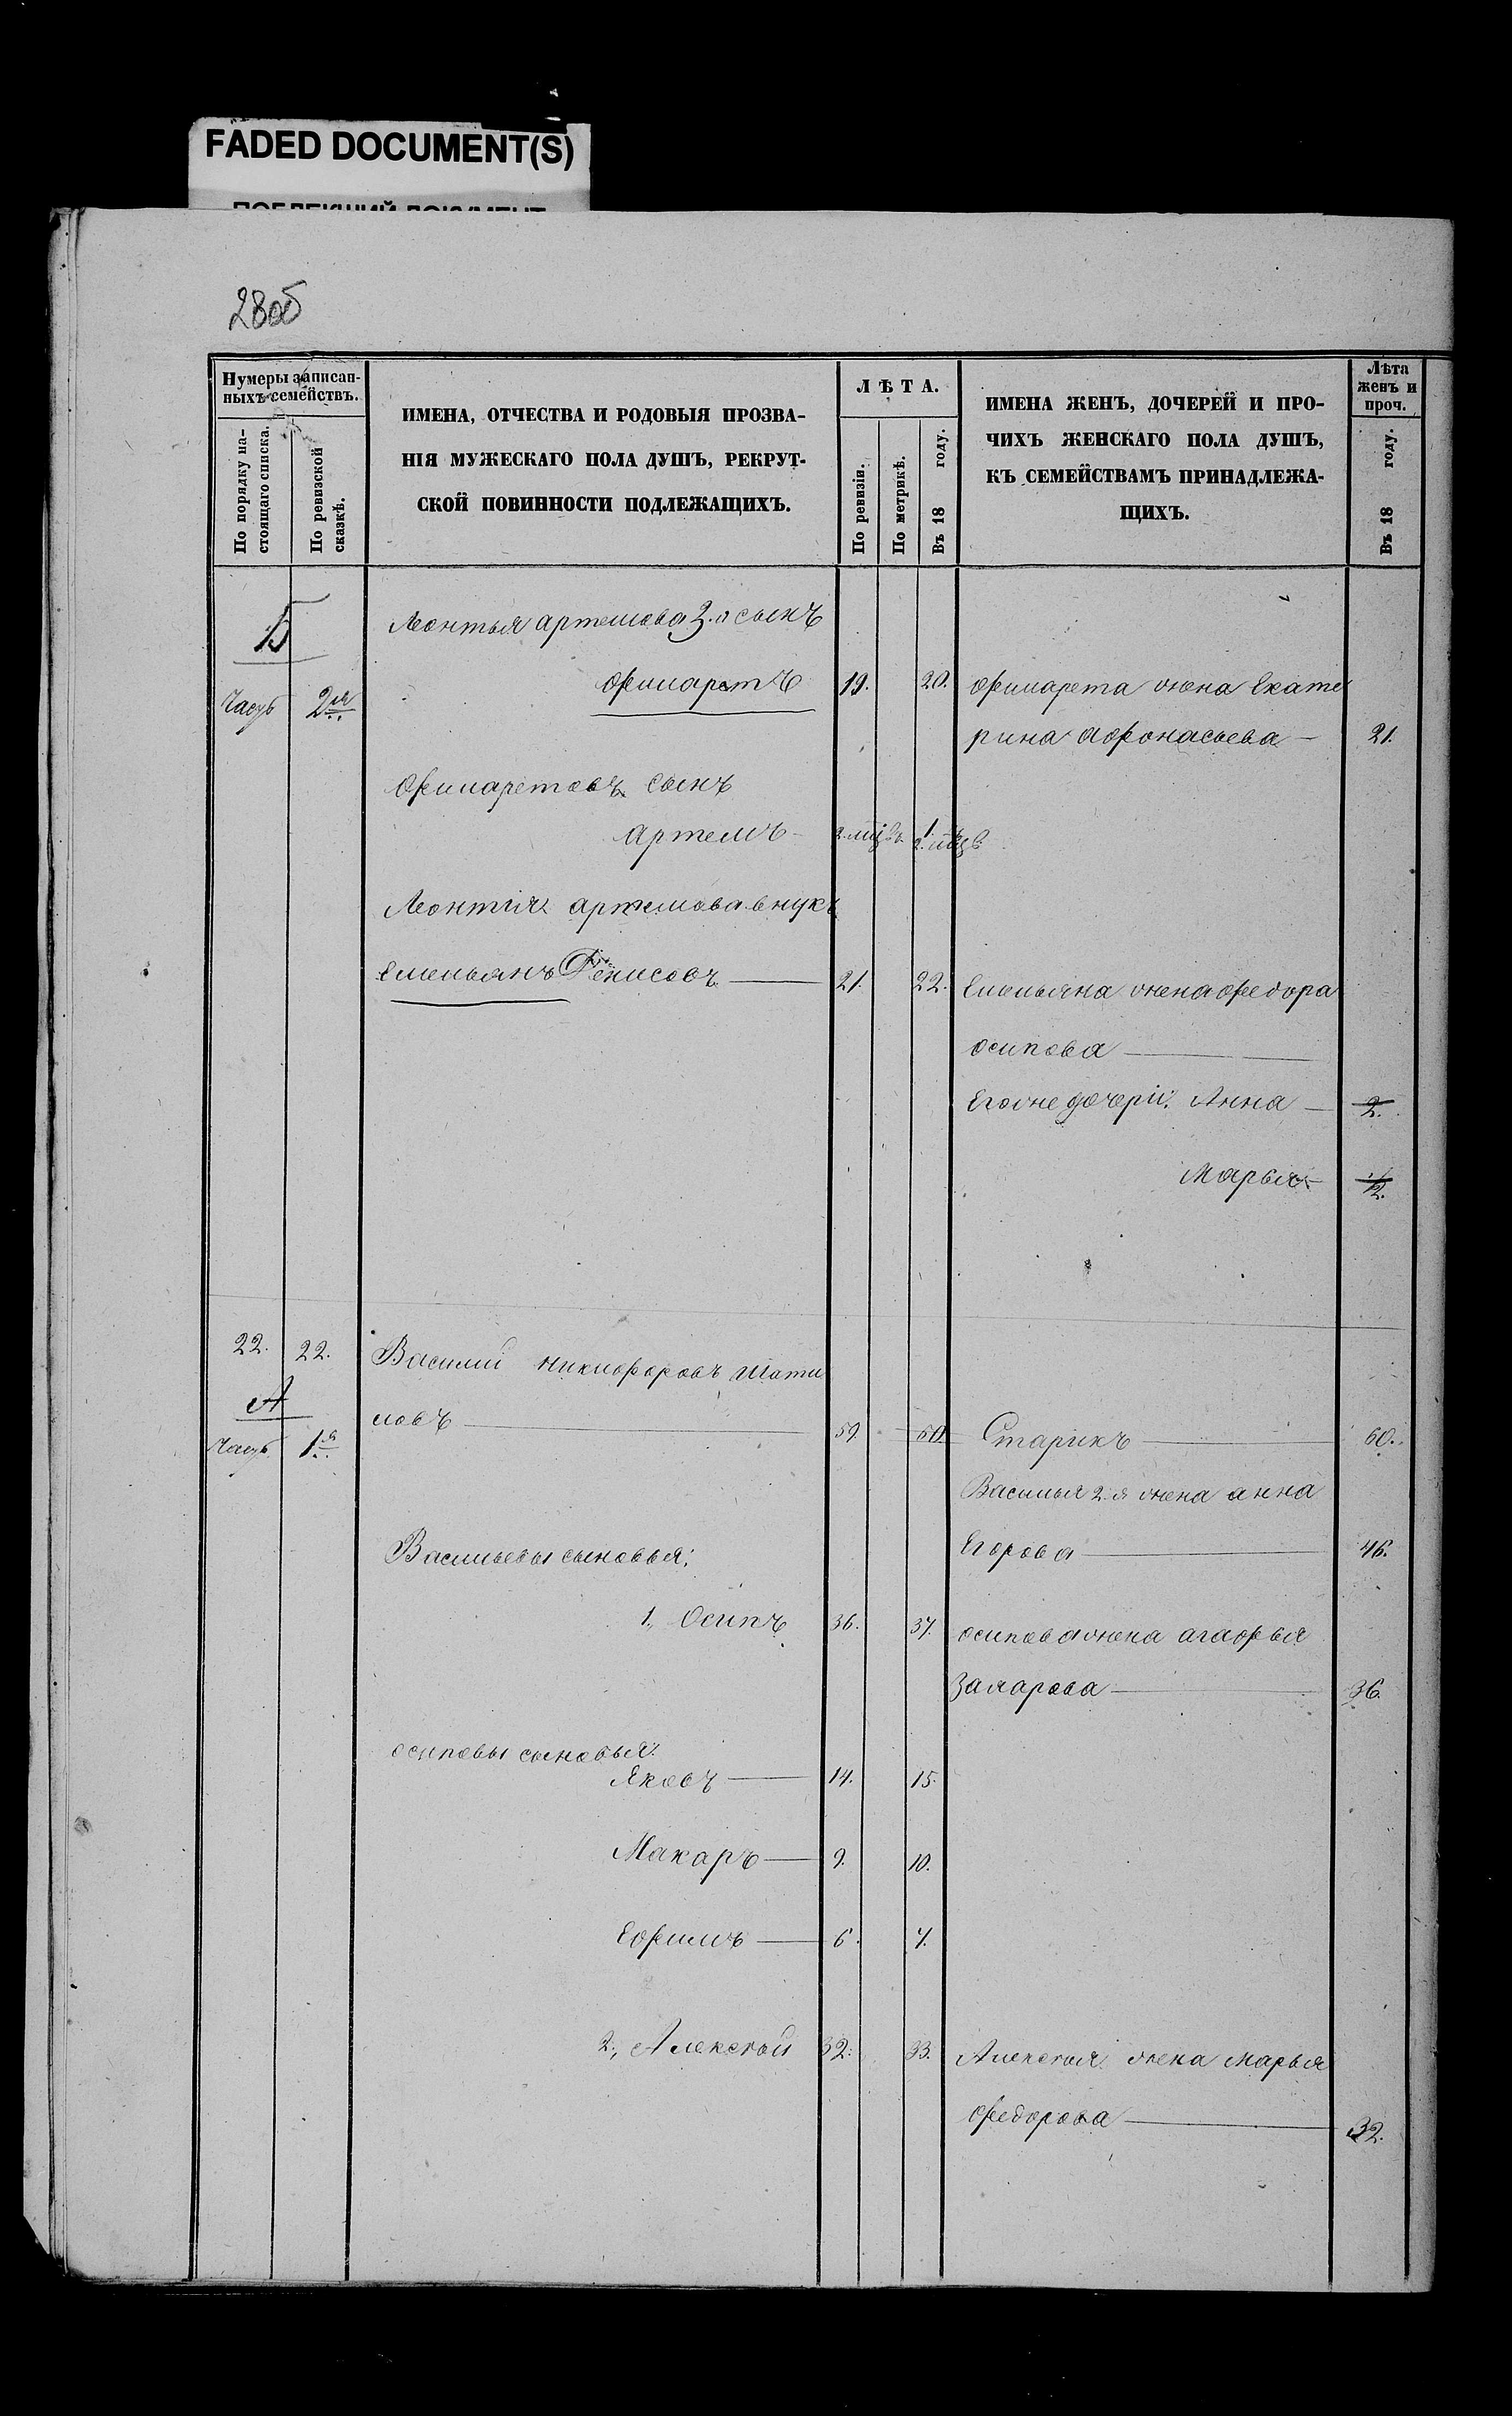 FADED DOCUMENT(S)
28об
Нумеры записан-
ныхъ семействъ.
По порядку на-
стоящаго списка.
По ревизской
сказкѣ.
ИМЕНА, ОТЧЕСТВА И РОДОВЫЯ ПРОЗВА-
НІЯ МУЖЕСКАГО ПОЛА ДУШЪ, РЕКРУТ-
СКОЙ ПОВИННОСТИ ПОДЛЕЖАЩИХЪ.
ЛѢТА.
По ревизіи.
По метрикѣ.
Въ 18 году.
ИМЕНА ЖЕНЪ, ДОЧЕРЕЙ И ПРО-
ЧИХЪ ЖЕНСКАГО ПОЛА ДУШЪ,
КЪ СЕМЕЙСТВАМЪ ПРИНАДЛЕЖА-
ЩИХЪ.
Лѣта
женъ и
проч.
Въ 18 году.
Б
Леонтья артемова 3.й сынъ
Филаретъ 19. 20. Филарета жена Екате
Часть 2я
рина Афонасьева — 21.
Филаретовъ сынъ
Артемъ
Леонтія артемова внукъ
Емельянъ Денисовъ — 21. 22. Емельяна жена федора
осипова —
Егоже дочери: Анна — 2.
Марья — 1/2.
22. 22. Василий никифоровъ Шати
А
ловъ — 59. 60 Старикъ — 60.
Часть 1я
Василья 2.я жена анна
Егорова — 46.
Васильевы сыновья:
1., Осипъ 36. 37. осипова жена агафья
Захарова — 36.
осиповы сыновья:
Яковъ — 14. 15.
Макаръ — 9. 10.
Ефимъ — 6. 7.
2., Алексѣй 32. 33. Алексѣя жена марья
федорова — 32.